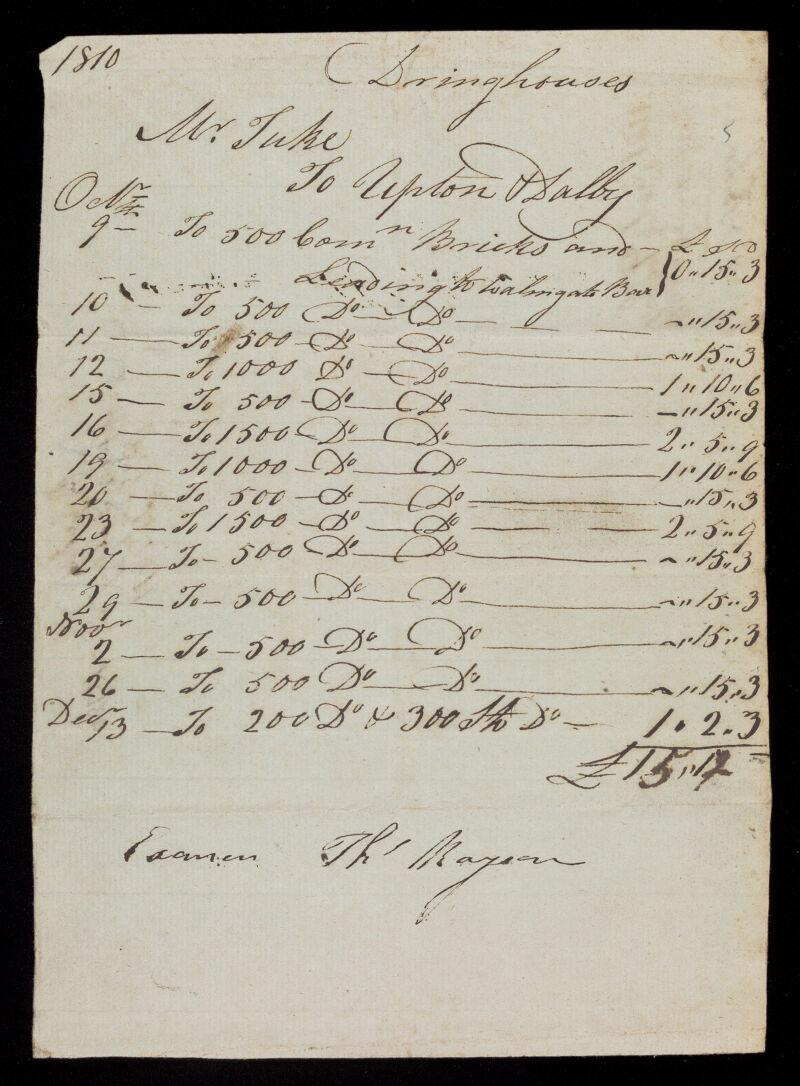 1810
Dringhouses
5
Mr. Tuke
To Upton & Dalby
9 — To 500 Comn Bricks and — £ s D
Leading to Walmgate Bar } 0 „ 15 „ 3
10 — To 500 Do — Do — — — ~ „ 15 „ 3
11 — To 500 — Do — Do — ~ „ 15 „ 3
12 — To 1000 Do — Do — 1 „ 10 „ 6
15 — To 500 — Do — Do — — „ 15 „ 3
16 — To 1500 — Do — Do — 2 „ 5 „ 9
19 — To 1000 — Do — Do — 1 „ 10 „ 6
20 — To 500 — Do — Do — — „ 15 „ 3
23 — To 1500 — Do — Do — — — 2 „ 5 „ 9
27 — To — 500 Do — Do — ~ „ 15 „ 3
29 — To — 500 Do — Do — ~ „ 15 „ 3
Novr
2 — To — 500 — Do Do — ~ „ 15 „ 3
26 — To 500 Do — Do — ~ „ 15 „ 3
Decr 13 — To 200 Do & 300 Sto Do — 1 „ 2 „ 3
£ 15 „ 17 —
Thos Mayson